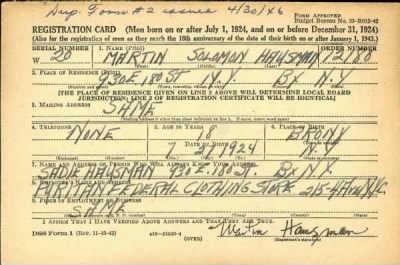 Dup. Form #2 issued 4/30/46
FORM APPROVED
Budget Bureau No. 33-R012-42
REGISTRATION CARD (Men born on or after July 1, 1924, and on or before December 31, 1924)
(Also for the registration of men as they reach the 18th anniversary of the date of their birth on or after January 1, 1943.)
SERIAL NUMBER 1. NAME (Print) ORDER NUMBER
W 20 MARTIN SOLOMON HAUSMAN 12188
(First) (Middle) (Last)
2. PLACE OF RESIDENCE (Print)
930 E. 180 ST N.Y. BX N.Y.
(Number and street) (Town, township, village, or city) (County) (State)
[THE PLACE OF RESIDENCE GIVEN ON LINE 2 ABOVE WILL DETERMINE LOCAL BOARD
JURISDICTION; LINE 2 OF REGISTRATION CERTIFICATE WILL BE IDENTICAL]
3. MAILING ADDRESS
SAME
[Mailing address if other than place indicated on line 2. If same, insert word same]
4. TELEPHONE 5. AGE IN YEARS 6. PLACE OF BIRTH
NONE 18 BRONX
DATE OF BIRTH
7 27 1924 N.Y.
7. NAME AND ADDRESS OF PERSON WHO WILL ALWAYS KNOW YOUR ADDRESS
SADIE HAUSMAN 930 E. 180 ST. BX N.Y.
8. EMPLOYER'S NAME AND ADDRESS
PURITAN FEDERAL CLOTHING STORE 215-4 AVE N.Y.C.
9. PLACE OF EMPLOYMENT OR BUSINESS
SAME
I AFFIRM THAT I HAVE VERIFIED ABOVE ANSWERS AND THAT THEY ARE TRUE.
DSS Form 1 (Rev. 11-16-42) (OVER) Martin Hausman
(Registrant's signature)